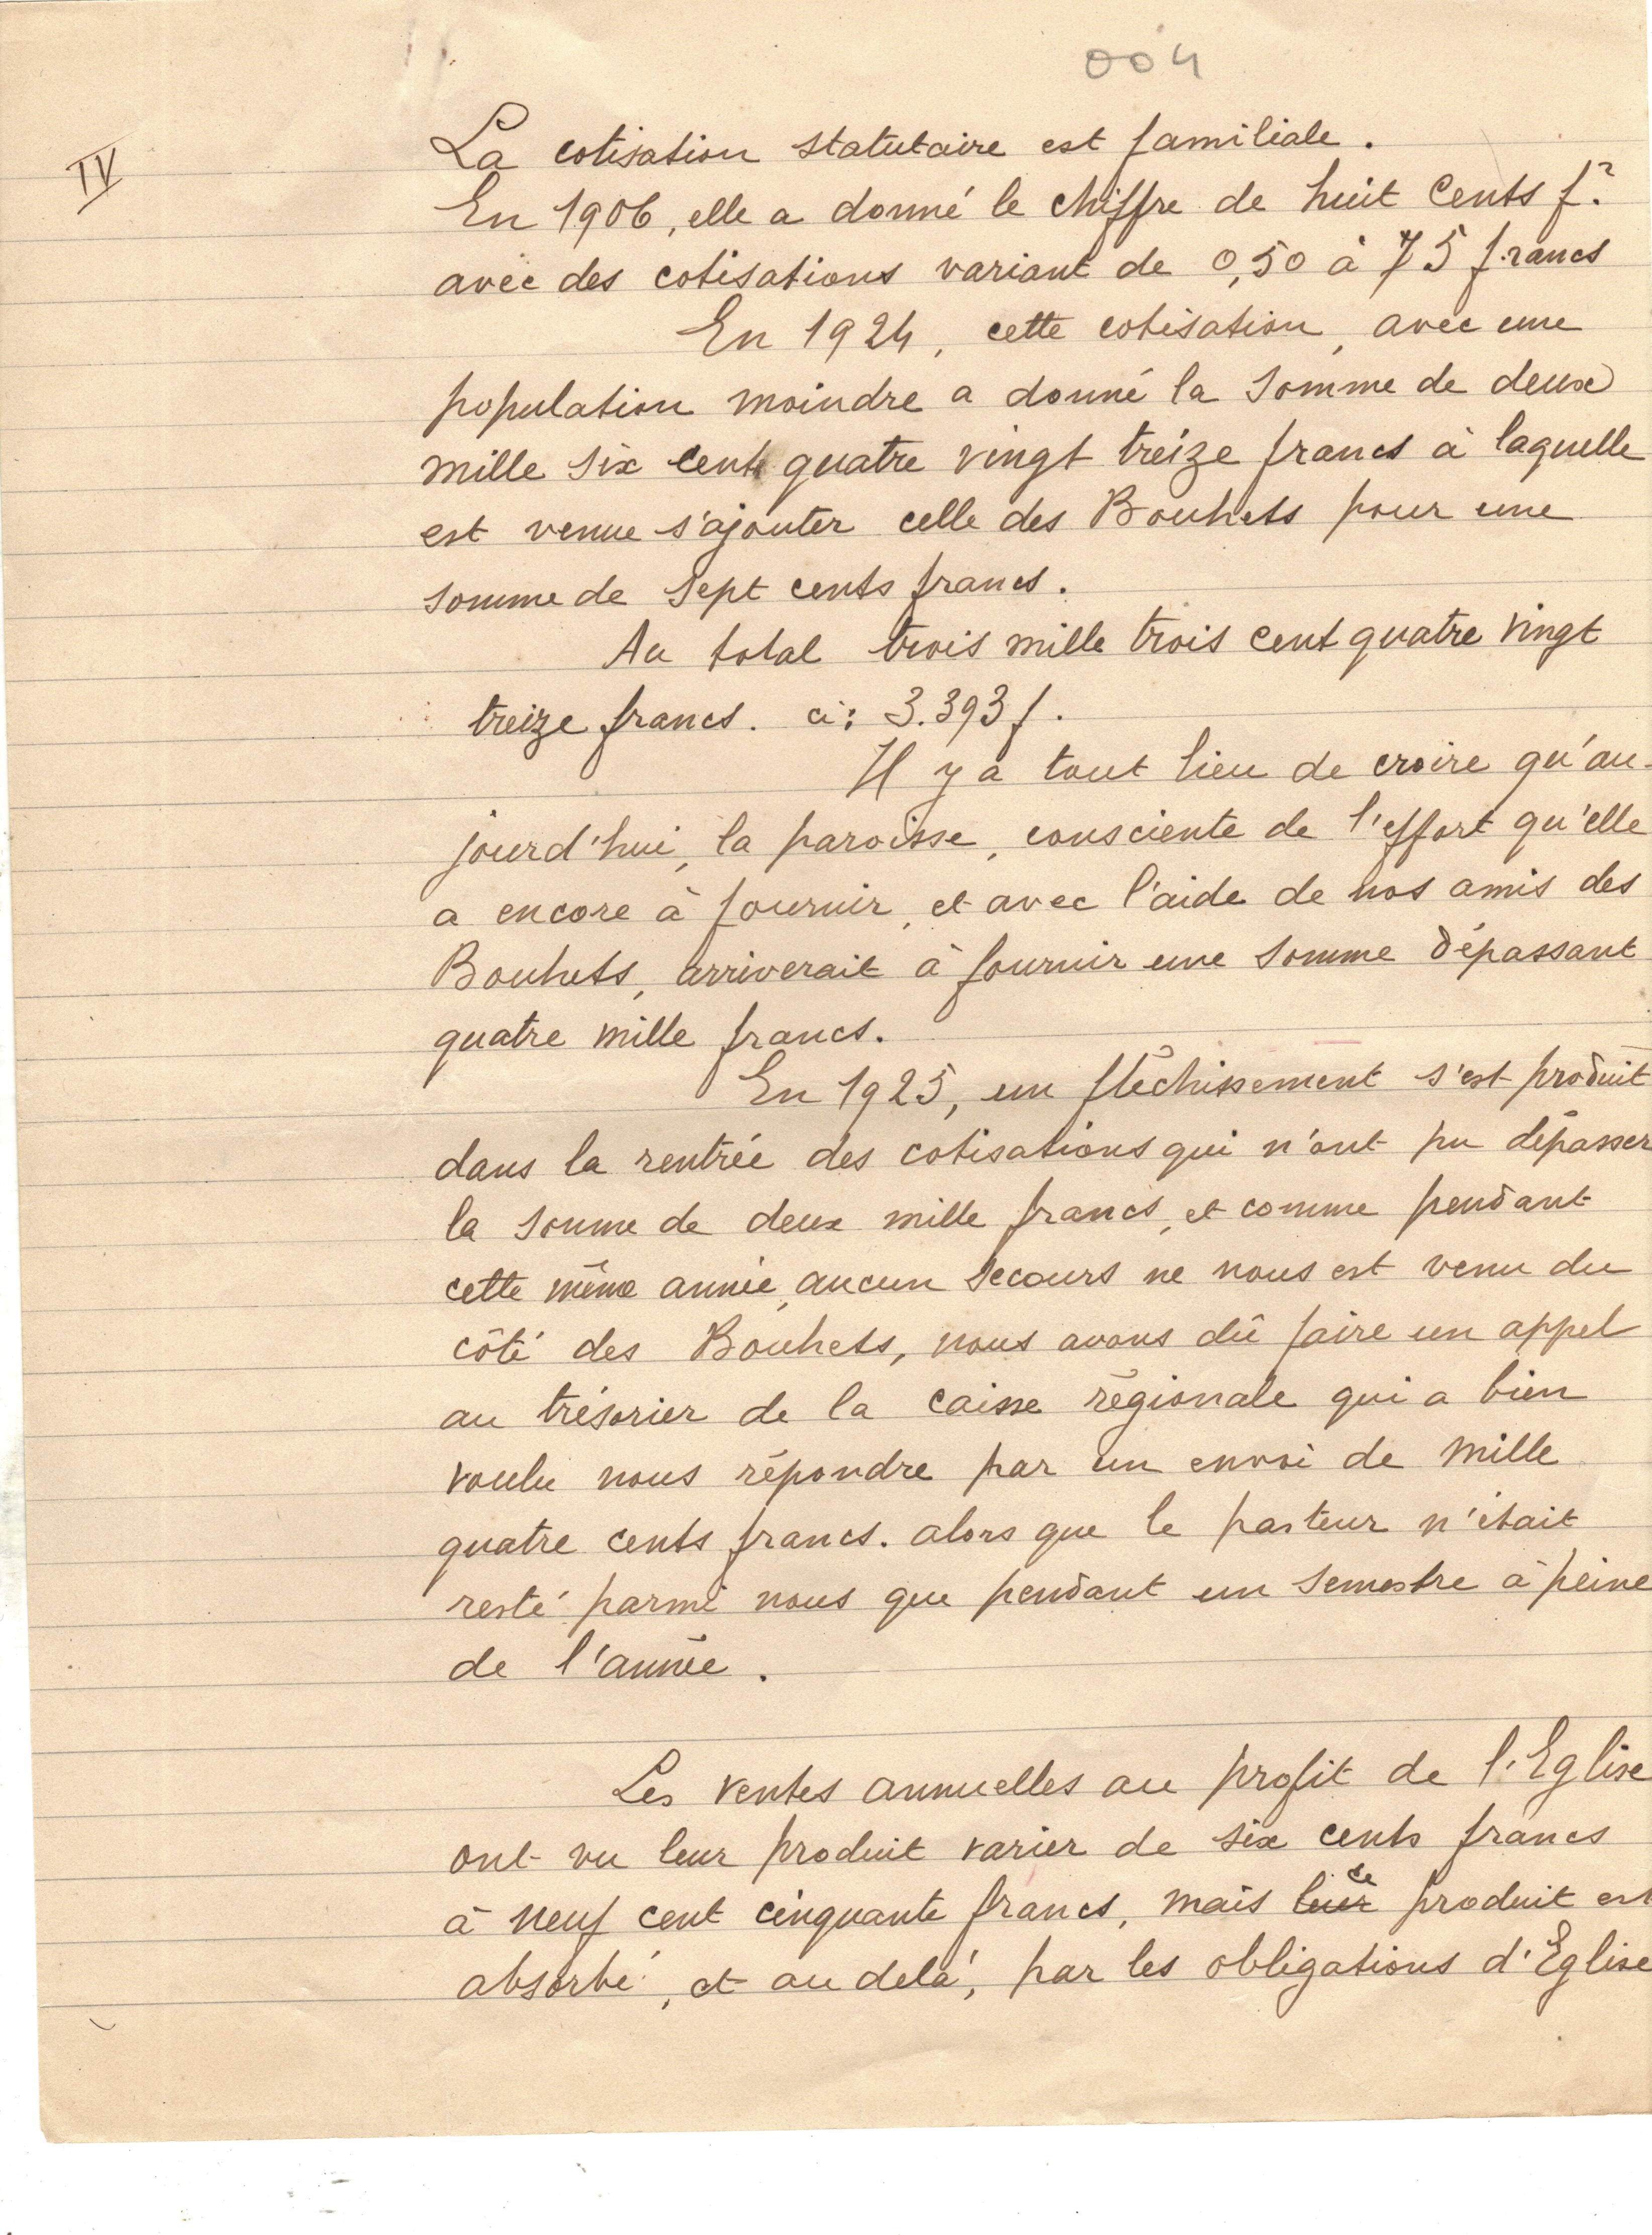 004
IV
La cotisation statutaire est familiale.
En 1906, elle a donné le chiffre de huit cents f.
avec des cotisations variant de 0,50 à 75 francs
En 1924, cette cotisation, avec une
population moindre a donné la somme de deux
mille six cent quatre vingt treize francs à laquelle
est venue s'ajouter celle des Bouhets pour une
somme de sept cents francs.
Au total trois mille trois cent quatre vingt
treize francs. ci: 3.393 f.
Il y a tout lieu de croire qu'au-
jourd'hui, la paroisse, consciente de l'effort qu'elle
a encore à fournir, et avec l'aide de nos amis des
Bouhets, arriverait à fournir une somme dépassant
quatre mille francs.
En 1925, un fléchissement s'est produit
dans la rentrée des cotisations qui n'ont pu dépasser
la somme de deux mille francs, et comme pendant
cette même année, aucun secours ne nous est venu du
côté des Bouhets, nous avons dû faire un appel
au trésorier de la caisse régionale qui a bien
voulu nous répondre par un envoi de mille
quatre cents francs. alors que le pasteur n'était
resté parmi nous que pendant un semestre à peine
de l'année.
Les ventes annuelles au profit de l'Eglise
ont vu leur produit varier de six cents francs
à neuf cent cinquante francs, mais leur le produit est
absorbé, et au delà, par les obligations d'Eglise